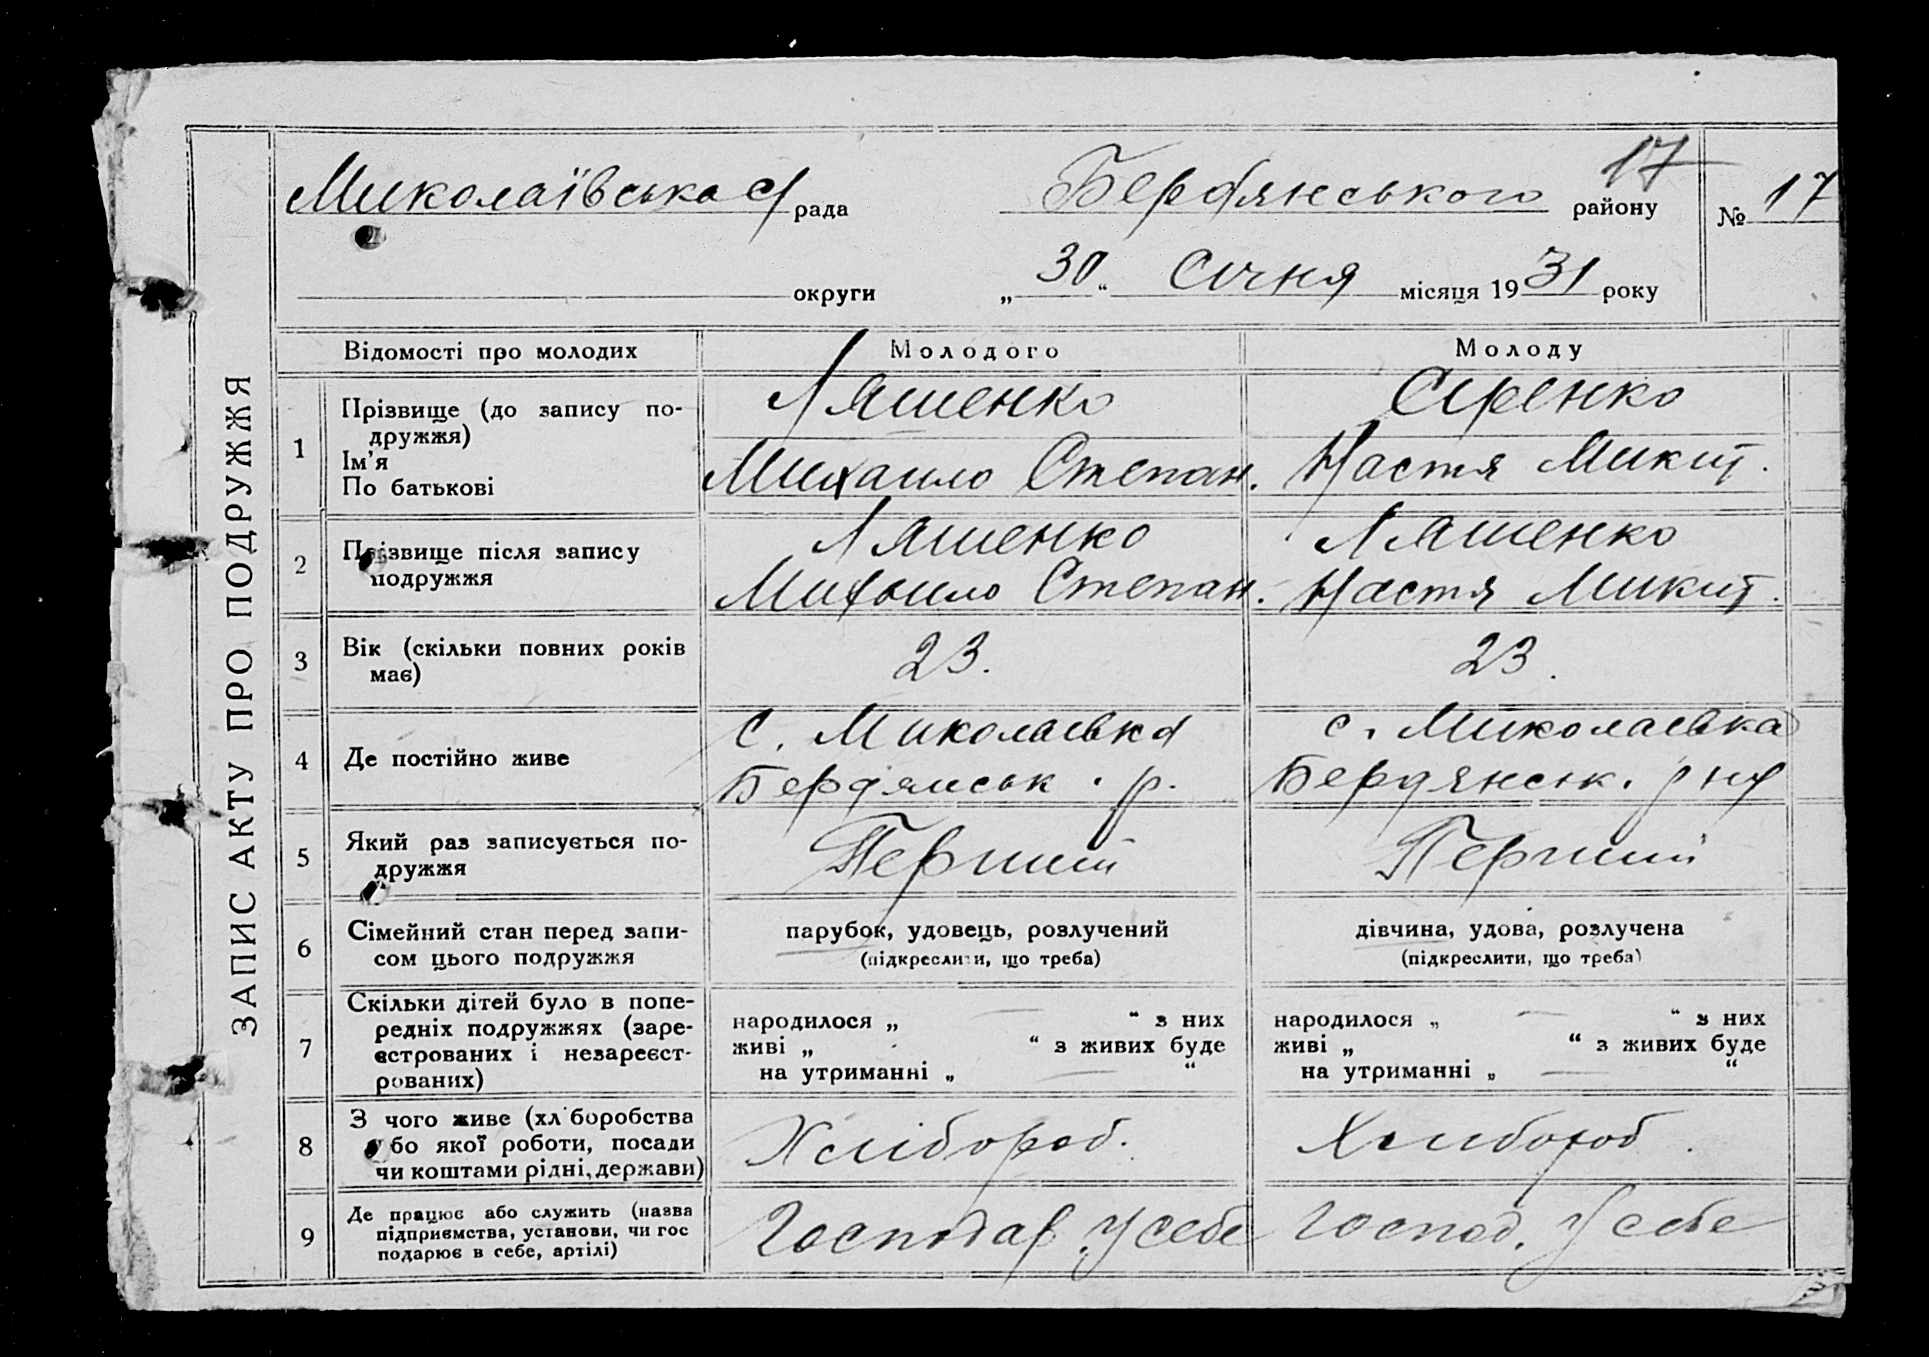 ЗАПИС АКТУ ПРО ПОДРУЖЖЯ
17
Миколаївська с/рада Бердянського району № 17
округи „30“ Січня місяця 1931 року
Відомості про молодих Молодого Молоду
1 Прізвище (до запису по- Ляшенко Сіренко
дружжя)
Ім’я Михаило Степан. Настя Микит.
По батькові
2 Прізвище після запису Ляшенко Ляшенко
подружжя Михаило Степан. Настя Микит.
3 Вік (скільки повних років 23. 23.
має)
4 Де постійно живе с. Миколаевка с. Миколаевка
Бердянськ. р. Бердянськ. рну
5 Який раз записується по- Перший Перший
дружжя
6 Сімейний стан перед запи- парубок, удовець, розлучений дівчина, удова, розлучена
сом цього подружжя (підкреслити, що треба) (підкреслити, що треба)
7 Скільки дітей було в попе-
редніх подружжях (заре- народилося „ — “ з них народилося „ — “ з них
єстрованих і незареєст- живі „ “ з живих буде живі „ “ з живих буде
рованих) на утриманні „ — “ на утриманні „ — “
8 З чого живе (хліборобства
або якої роботи, посади Хлібороб. Хлибороб.
чи коштами рідні, держави)
9 Де працює або служить (назва
підприємства, установи, чи гос Господар. У себе Господ. У себе
подарює в себе, артілі)